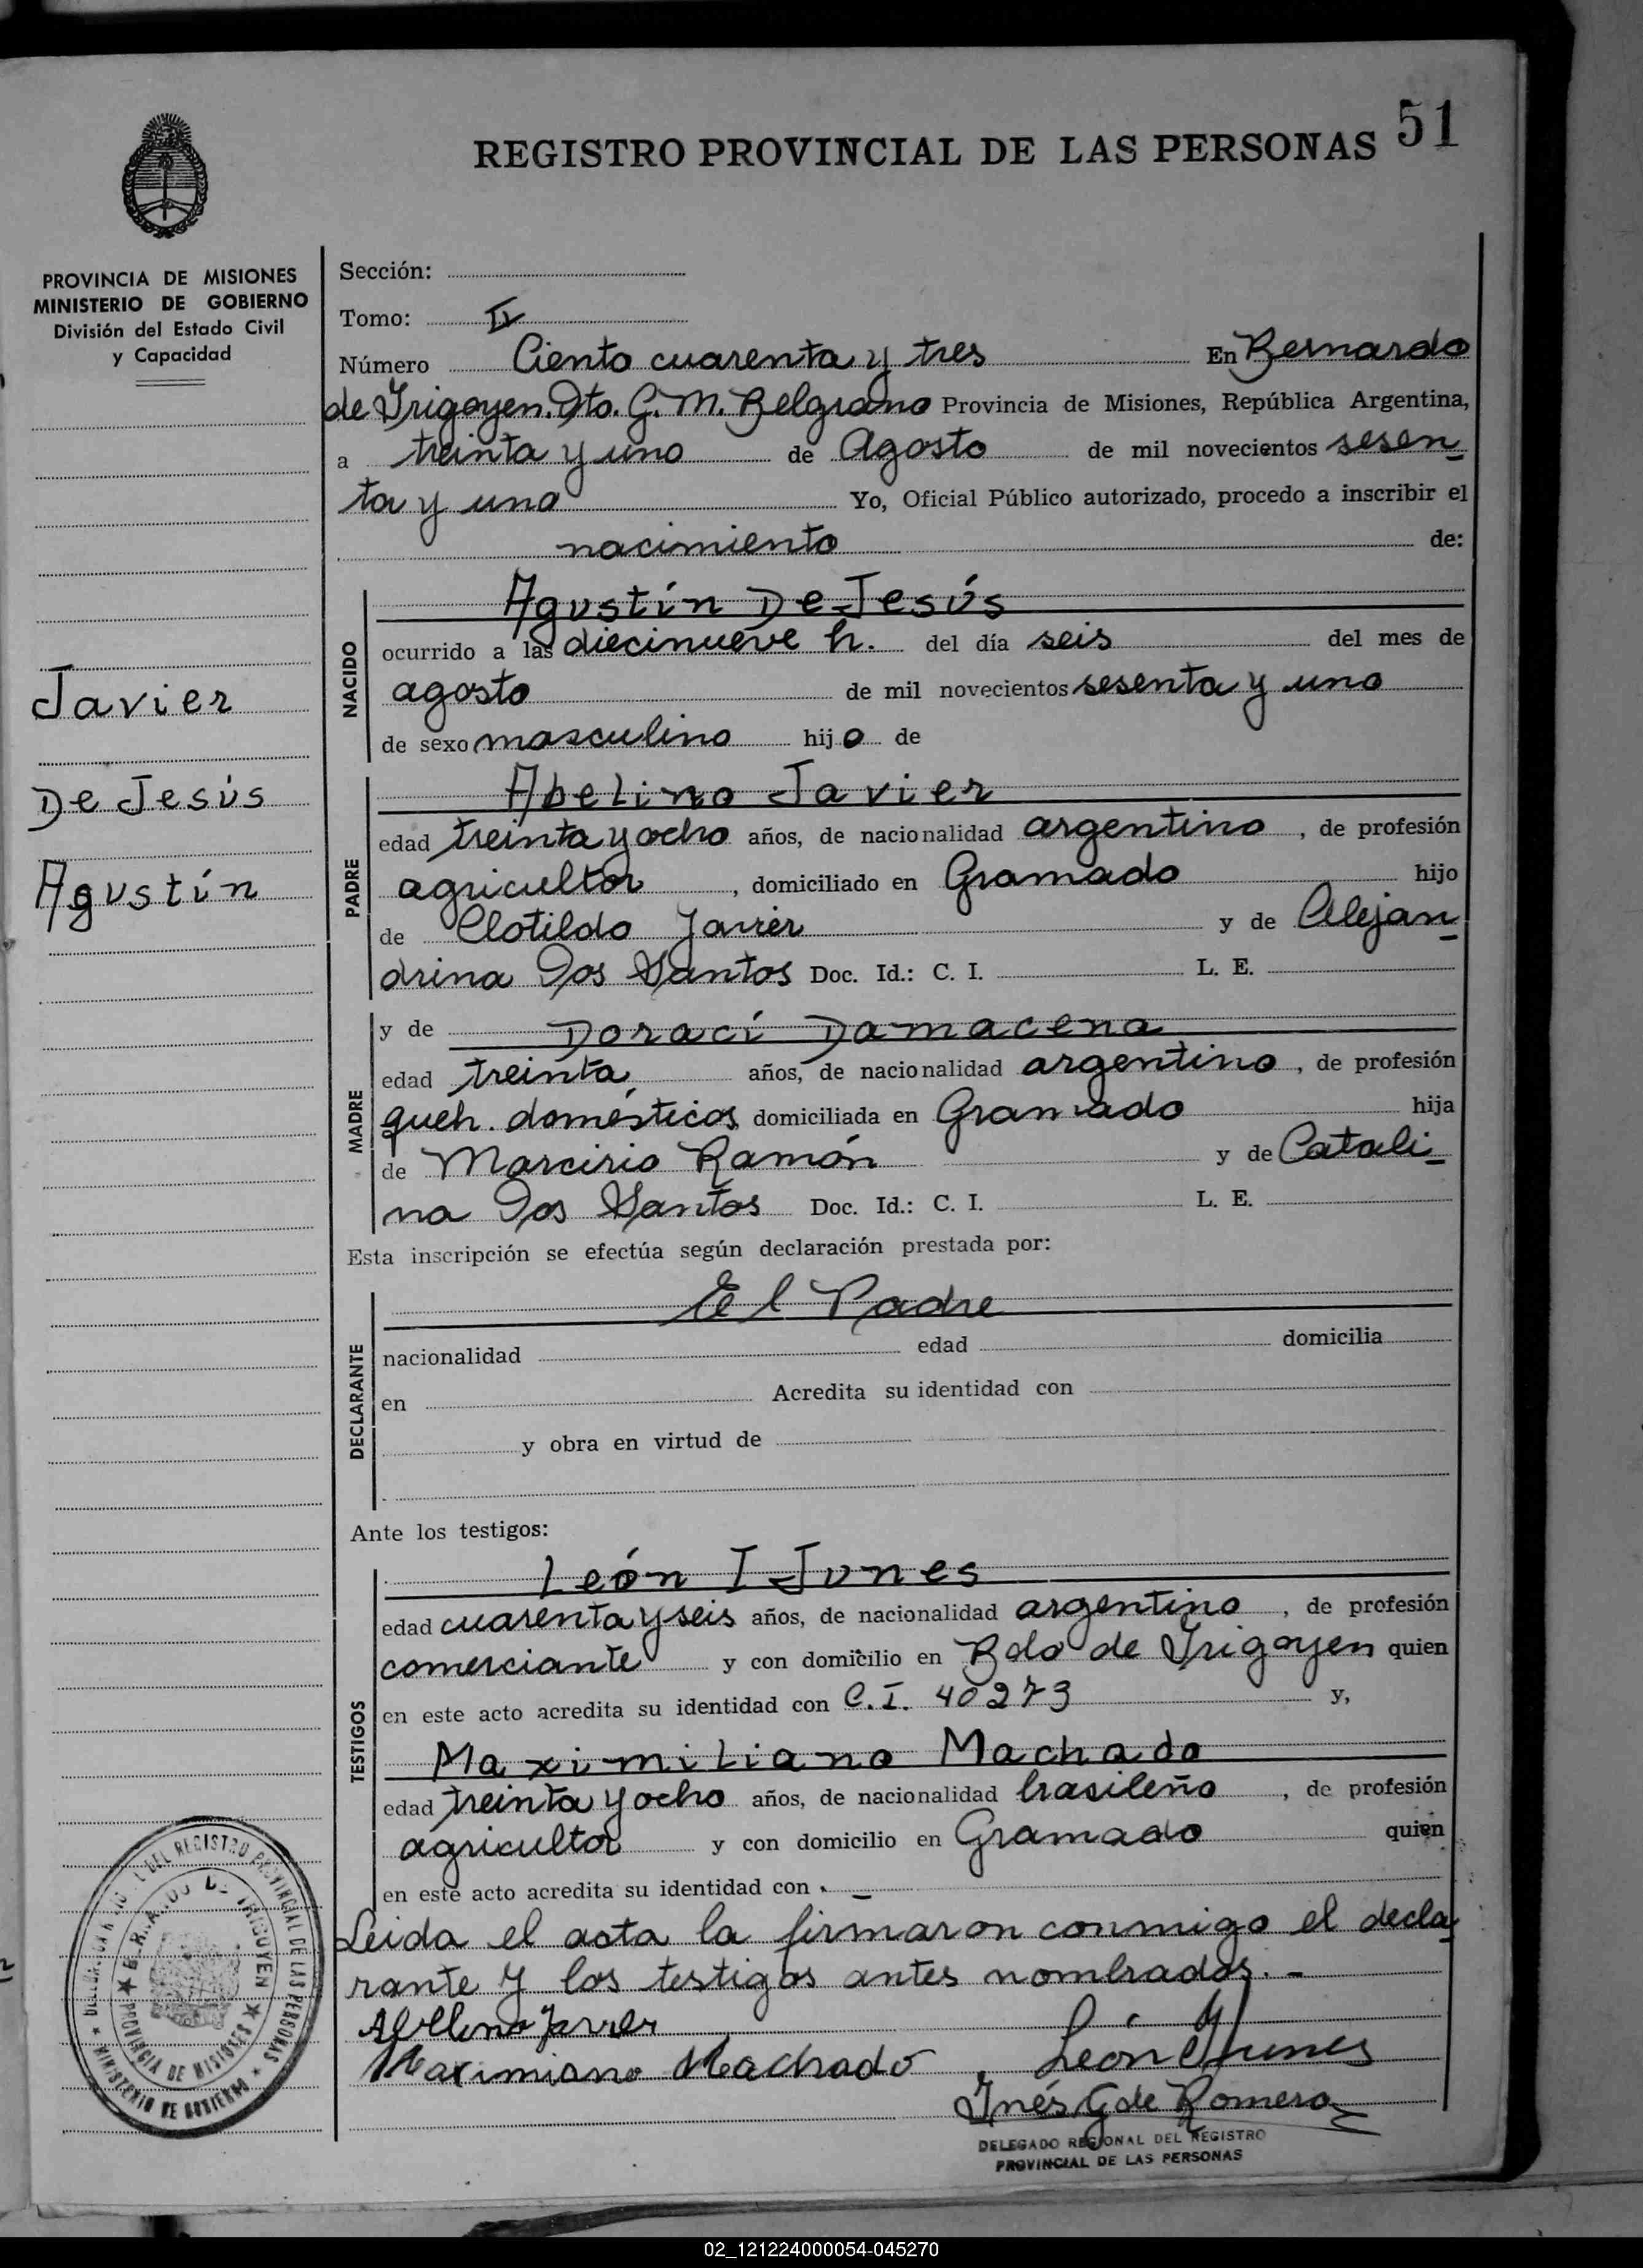 REGISTRO PROVINCIAL DE LAS PERSONAS 51
PROVINCIA DE MISIONES
MINISTERIO DE GOBIERNO
División del Estado Civil
y Capacidad
Javier
De Jesús
Agustín
Sección:
Tomo: II
Número Ciento cuarenta y tres En Bernardo
de Irigoyen. Dto. G. M. Belgrano Provincia de Misiones, República Argentina,
a treinta y uno de Agosto de mil novecientos sesen
ta y uno Yo, Oficial Público autorizado, procedo a inscribir el
nacimiento de:
NACIDO
Agustín De Jesús
ocurrido a las diecinueve h. del día seis del mes de
agosto de mil novecientos sesenta y uno
de sexo masculino hijo de
PADRE
Abelino Javier
edad treinta y ocho años, de nacionalidad argentino, de profesión
agricultor, domiciliado en Gramado hijo
de Clotildo Javier y de Alejan
drina Dos Santos Doc. Id.: C. I. L. E.
MADRE
y de Doraci Damacena
edad treinta años, de nacionalidad argentino, de profesión
queh. domésticos domiciliada en Gramado hija
de Marcirio Ramón y de Catali
na Dos Santos Doc. Id.: C. I. L. E.
Esta inscripción se efectúa según declaración prestada por:
DECLARANTE
El Padre
nacionalidad edad domicilia
en Acredita su identidad con
y obra en virtud de
Ante los testigos:
TESTIGOS
León I Junes
edad cuarenta y seis años, de nacionalidad argentino, de profesión
comerciante y con domicilio en Bdo de Irigoyen quien
en este acto acredita su identidad con C.I. 40273 y,
Maximiliano Machado
edad treinta y ocho años, de nacionalidad brasileño, de profesión
agricultor y con domicilio en Gramado quien
en este acto acredita su identidad con -
Leida el acta la firmaron conmigo el decla
rante y los testigos antes nombrados. -
Maximiano Machado León
Inés G de Romero
DELEGADO REGIONAL DEL REGISTRO
PROVINCIAL DE LAS PERSONAS
DEL REGISTRO PROVINCIAL DE LAS PERSONAS
★ MINISTERIO DE GOBIERNO ★
BERNARDO DE IRIGOYEN
★ PROVINCIA DE MISIONES ★
02_121224000054-045270